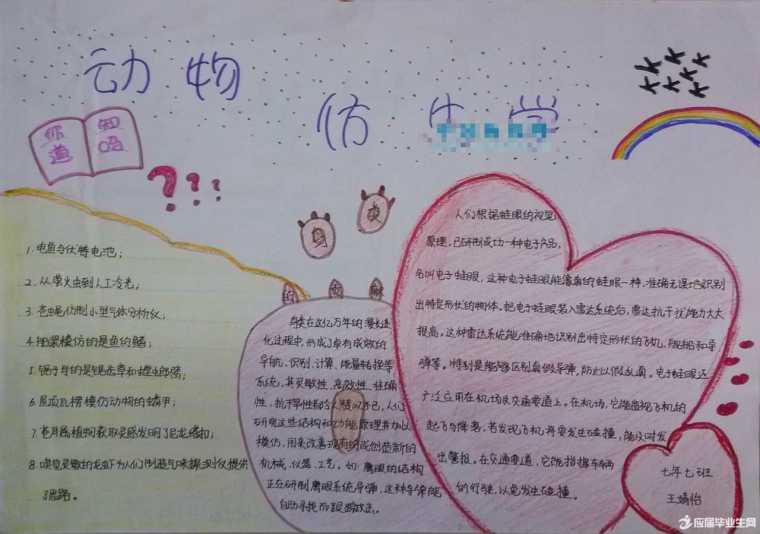 动物
仿生学
你知
道吗
???
1.电鱼与伏特电池；
2.从萤火虫到人工冷光；
3.苍蝇仿制小型气体分析仪；
4.船桨模仿的是鱼的鳍；
5.锯子学的是螳螂臂和锯齿草
6.屋顶瓦楞模仿动物的鳞甲；
7.苍耳属植物获取灵感发明了尼龙搭扣；
8.嗅觉灵敏的龙虾为人们制造气味探测仪提供
了思路。
身
鸟类在这亿万年的漫长进
化过程中，形成了卓有成效的
导航、识别、计算、能量转换等
系统，其灵敏性、高效性、准确
性、抗干扰性都令人惊叹不已，人们
研究这些结构和功能原理并加以
模仿，用来改善现有的或创造新的
机械、仪器、工艺。如：鹰眼的结构
正在研制鹰眼系统导弹，这种导弹能
自动寻找和跟踪敌击。
人们根据蛙眼的视觉
原理，已研制成功一种电子产品，
名叫电子蛙眼，这种电子蛙眼能像真的蛙眼一样，准确无误地识别
出特定形状的物体。把电子蛙眼装入雷达系统后，雷达抗干扰能力大大
提高。这种雷达系统能准确地识别出特定形状的飞机、舰船和导
弹等。特别是能够区别真假导弹，防止以假乱真。电子蛙眼还
广泛应用在机场及交通要道上。在机场，它能监视飞机的
起飞与降落，若发现飞机将要发生碰撞，能及时发
出警报。在交通要道，它能指挥车辆
的行驶，以免发生碰撞。
七年七班
王婧怡
应届毕业生网